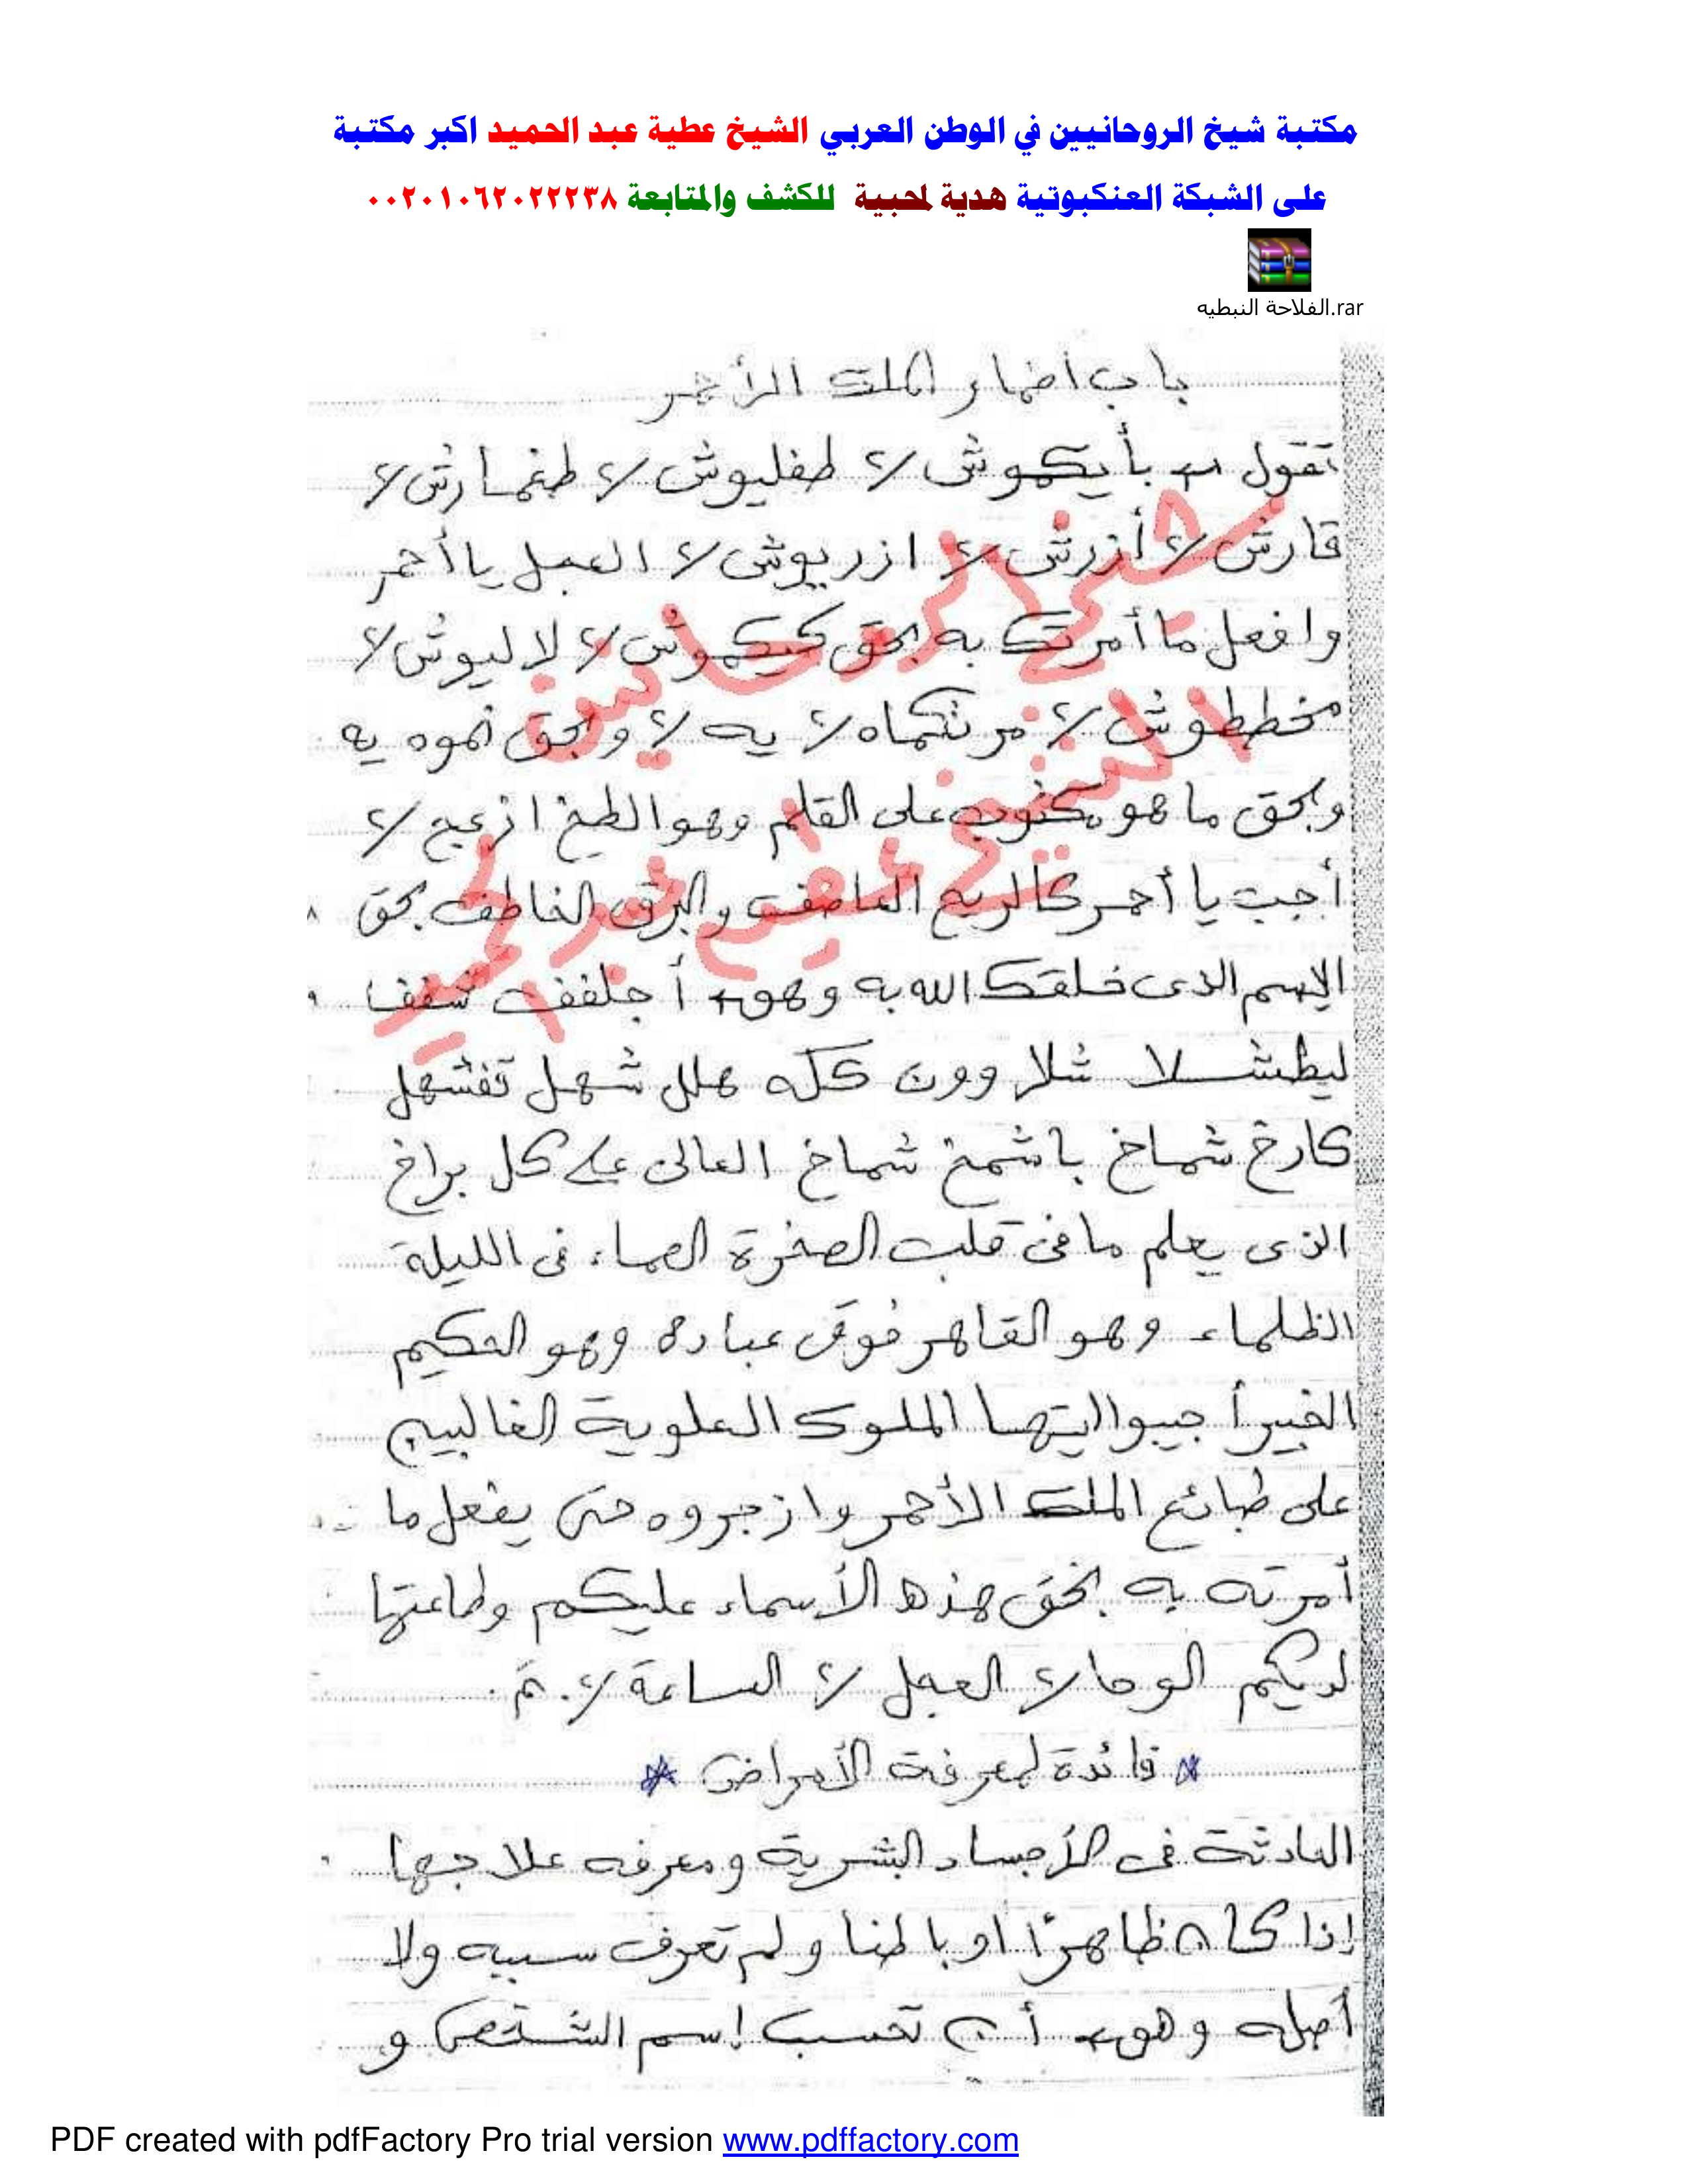 مكتبة شيخ الروحانيين في الوطن العربي الشيخ عطية عبد الحميد اكبر مكتبة
على الشبكة العنكبوتية هدية لمحبية للكشف والمتابعة ٠٠٢٠١٠٦٢٠٢٢٢٣٨
الفلاحة النبطيه.rar
باب اضمار الملك الأحمر
تقول بأيكموش ٧ طفليوش ٧ طغمارش ٧
قارش ٧ أزرش ٧ ازريوش ٧ العجل يا أحمر
وافعل ما أمرتك به بحق كيكموش ٧ لاليوش ٧
مخططوش ٧ مرنتكماه ٧ يه ٧ وبحق نموه يه
وبحق ما هو مكتوب على القلم وهو الطيخ ازعج ٧
أجب يا أحمر كالريح العاصف والبرق الخاطف بحق
الإسم الذى خلقك الله به وهو أجلفف شفف
ليطشلا شلا وون كله هلل شهل تفشهل
كارخ شماخ باشمخ شماخ العالى على كل براخ
الذى يعلم ما فى قلب الصخرة الصماء فى الليلة
الظلماء وهو القاهر فوق عباده وهو الحكيم
الخبير أجيبوا ايتها الملوك العلوية الغالبين
على طبائع الملك الأحمر وازجروه حتى يفعل ما
أمرته به بحق هذه الأسماء عليكم وطاعتها
لديكم الوحا ٧ العجل ٧ الساعة ٧ . تم .
* فائدة لمعرفة الأمراض *
الحادثة فى الأجساد البشرية ومعرفه علاجها
إذا كان ظاهرًا او باطنا ولم تعرف سببه ولا
أصله وهو أن تحسب إسم الشخص و
شيخ الروحانيين
الشيخ عطيه عبد الحميد
PDF created with pdfFactory Pro trial version www.pdffactory.com